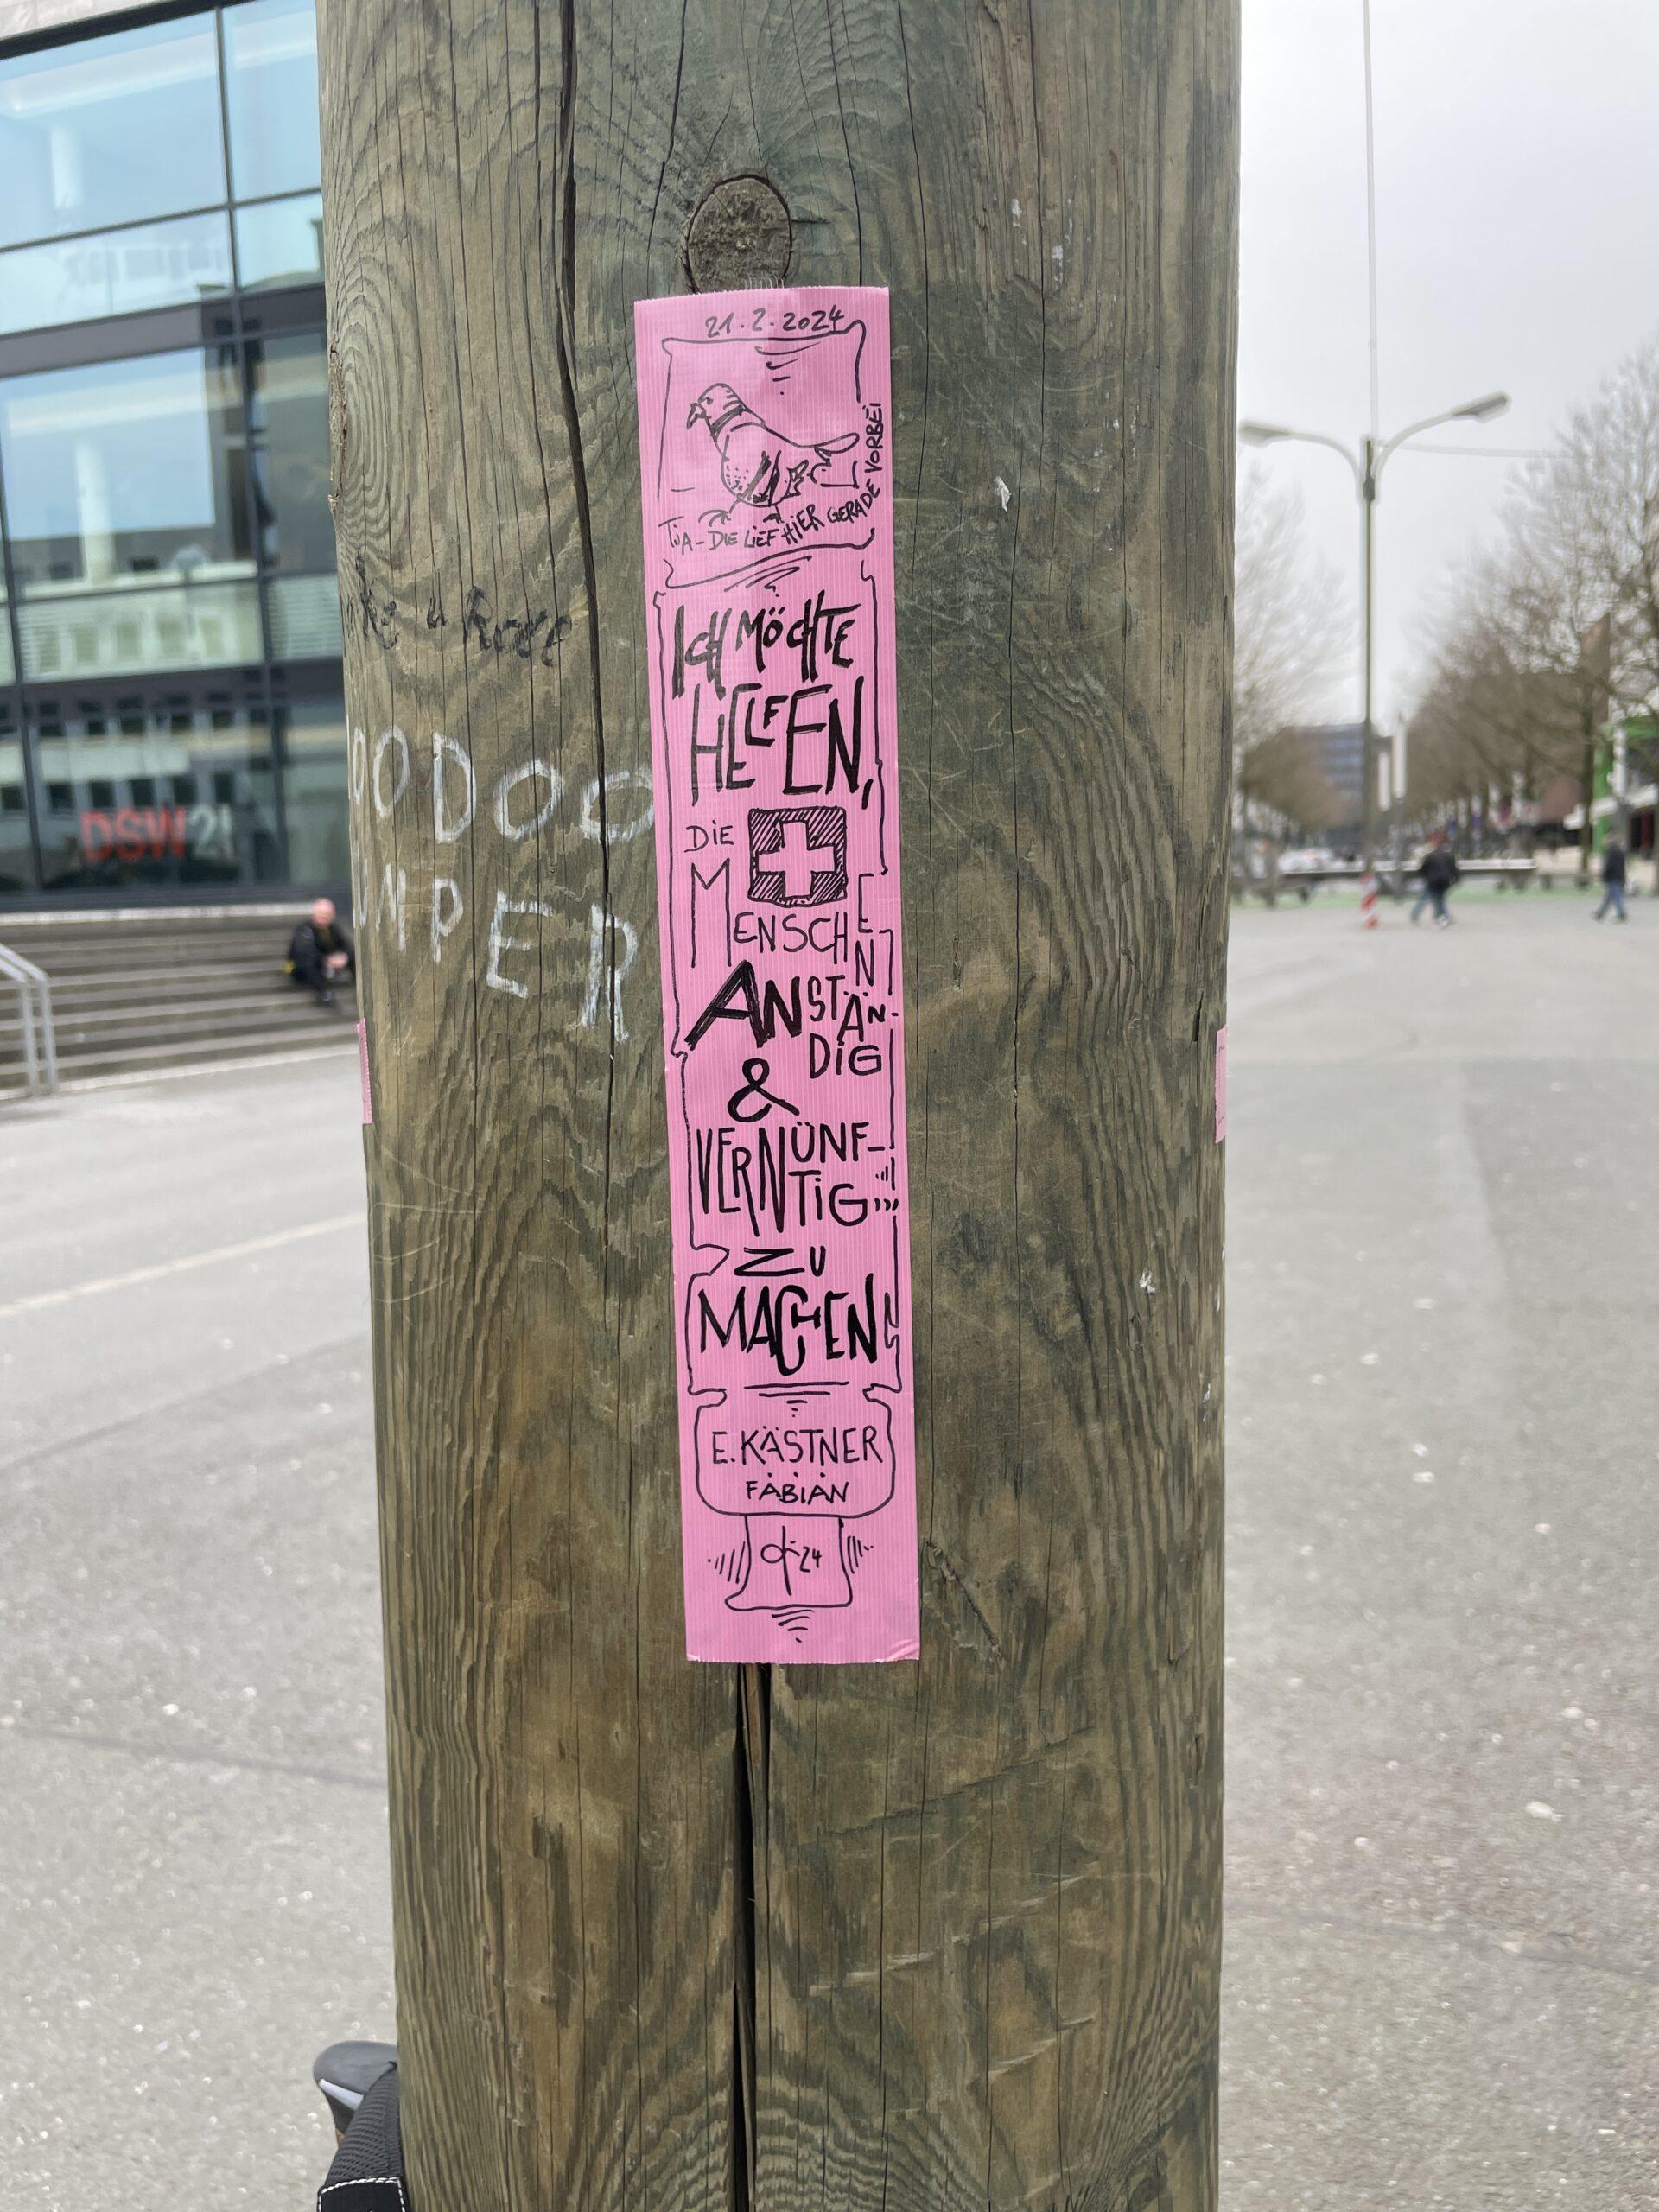 21.2.2024
TJA - DIE LIEF HIER GERADE VORBEI
ICH MÖCHTE
HELFEN,
DIE
MENSCHEN
ANSTÄN-
DIG
&
VERNÜNF-
TIG...
ZU
MACHEN!
E. KÄSTNER
FABIAN
24
OODOO
UNPER
DSW21